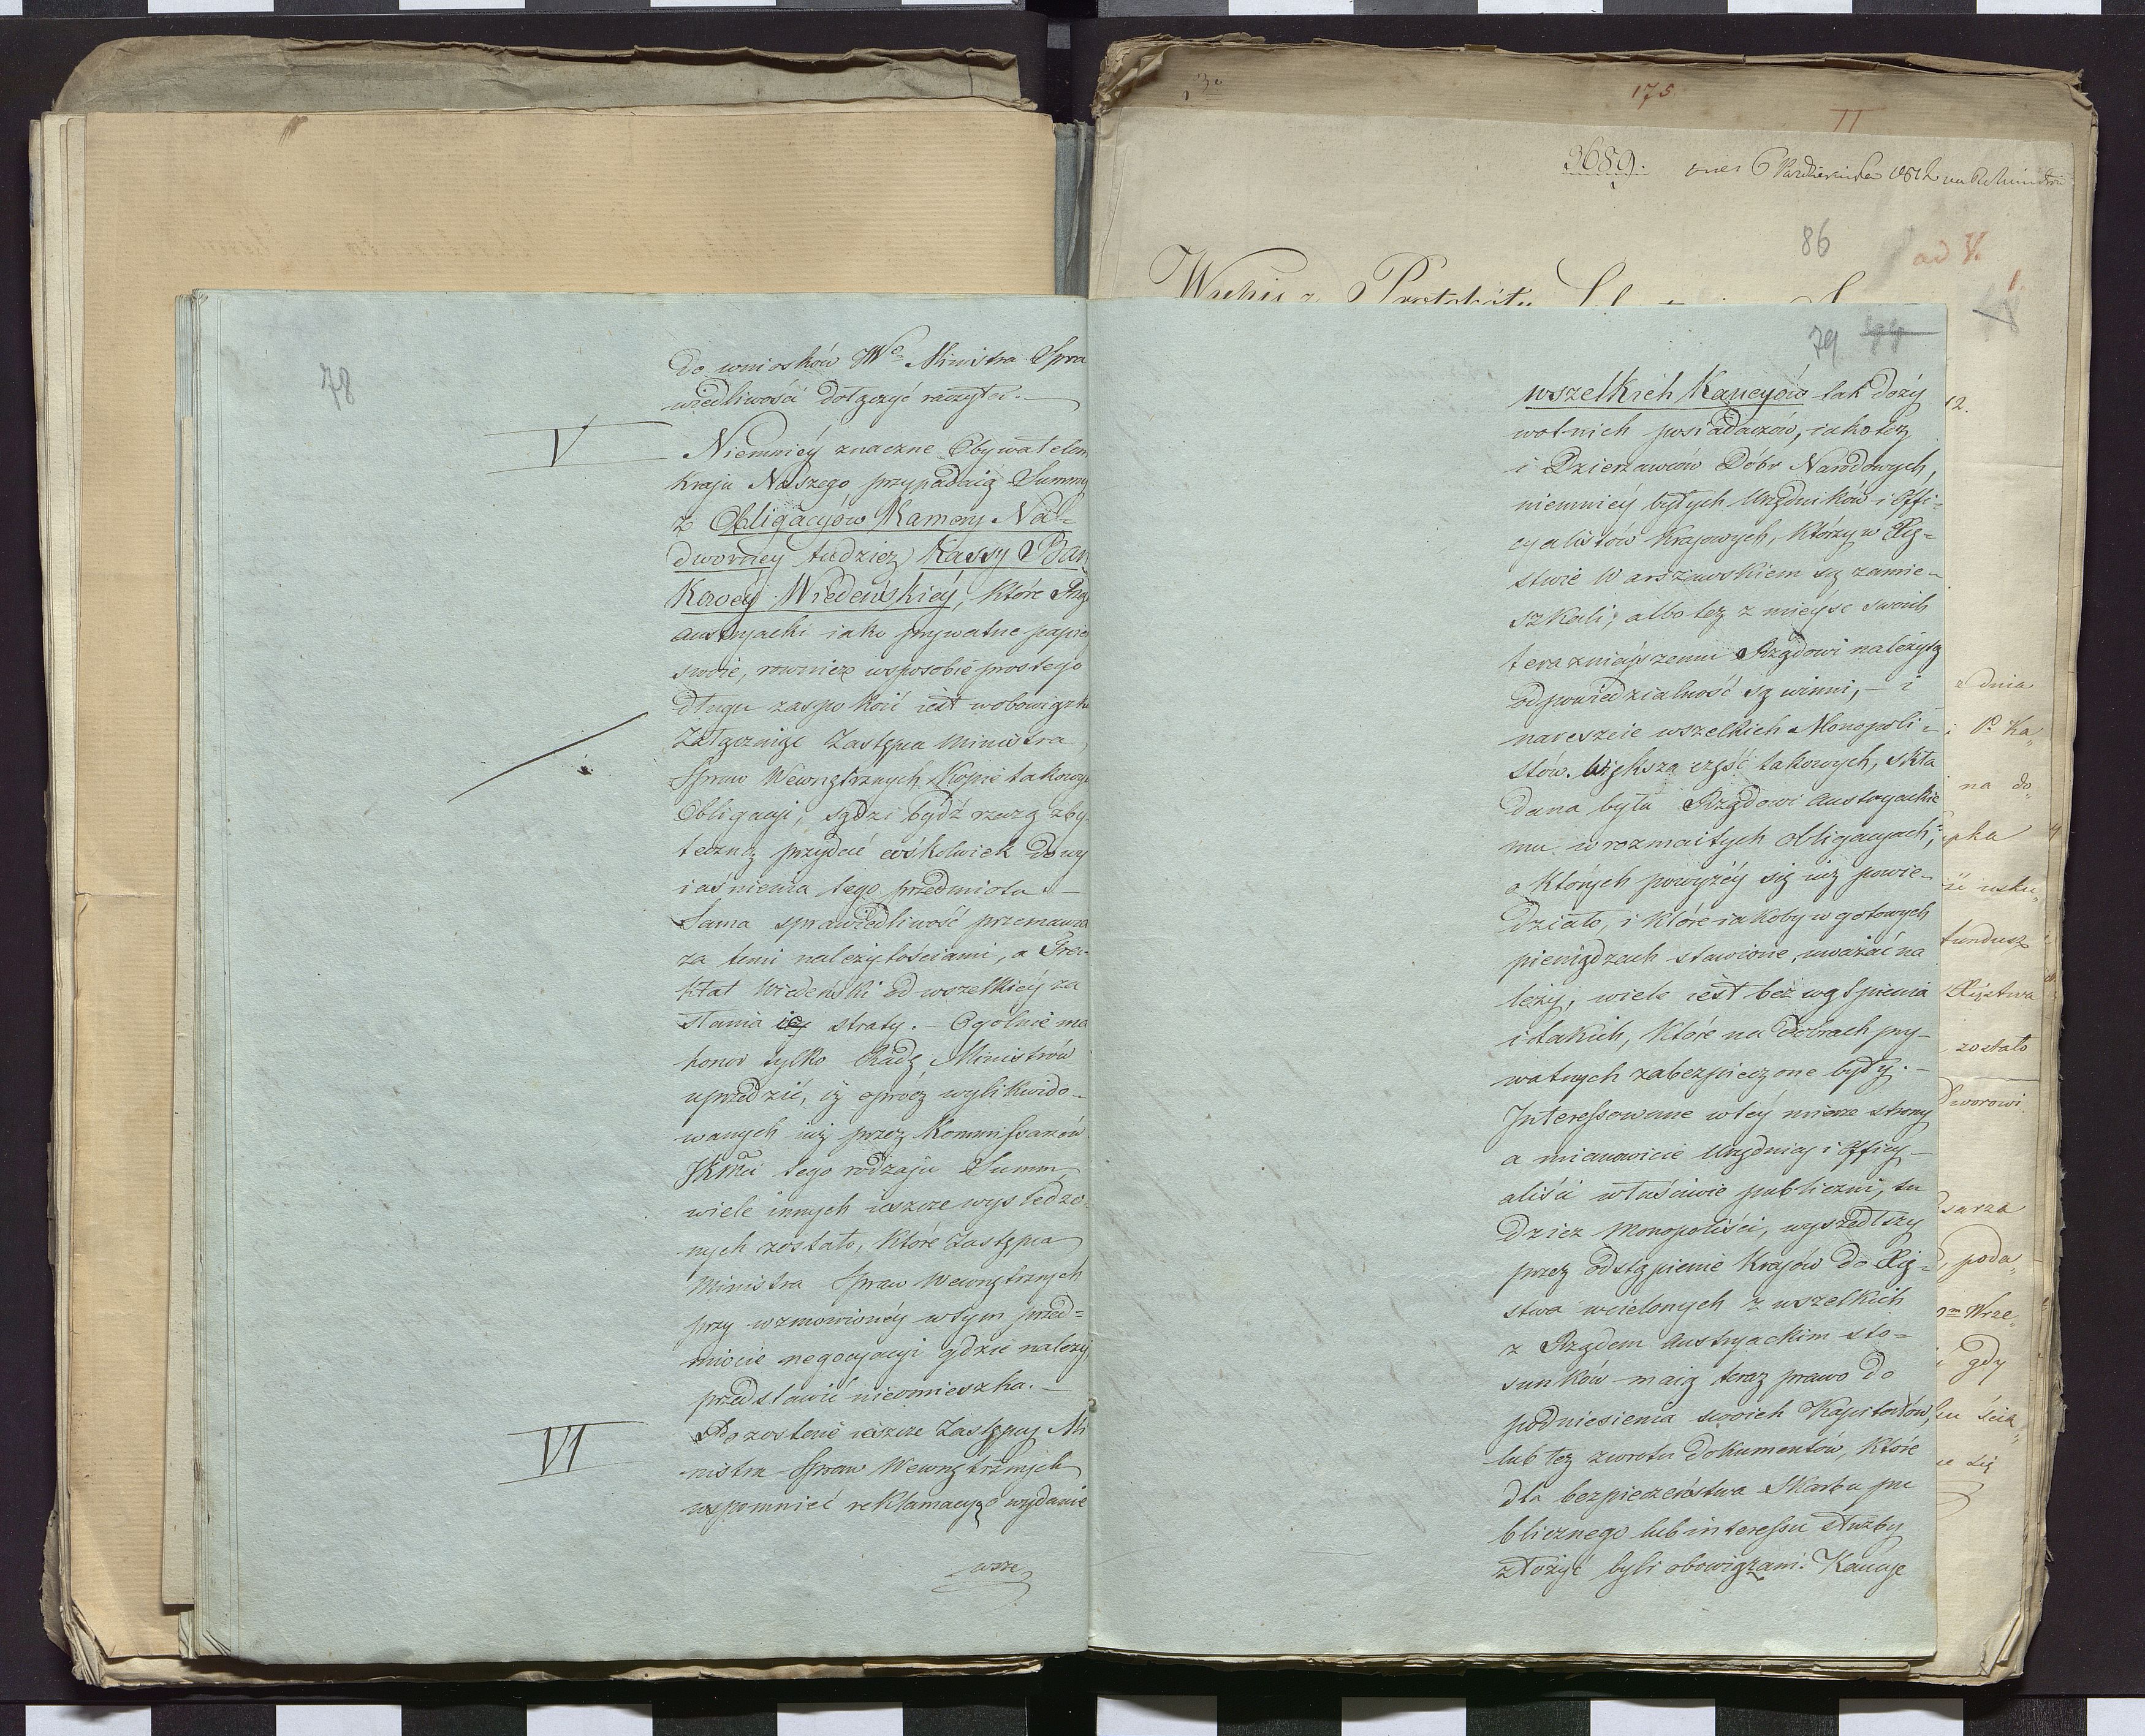 78
do wniosków Wo Ministra Spra
wiedliwości dołączyć raczyła.—
V
Niemniéy znaczne Obywatelom
kraju Naszego, przypadaią Summy
z Obligacyów Kamery Na-
dworney tudzież Kassy Ban
kowéy Wiedeńskiéy, które Rzą
austryacki iako prywatne papie
swoie, rownież wsposobie prostego
długu zaspokoić iest wobowiązku
Załącznię Zastępca Ministra
Spraw Wewnętrznych Kopie takowych
Obligacyi, sądzi bydź rzeczą zby
teczną przydać cóśkolwiek do wy
iaśnienia tego przedmiotu.—
Sama sprawiedliwość przemawia
za temi należytościami, a Trac-
ktat Wiedeński od wszelkiéy za
słania ię straty.— Ogolnie ma
honor tylko Radę Ministrów
uprzedzić, iż oprócz wylikwido-
wanych iuż przez Kommissarzów
JKMci tego rodzaju Summ
wiele innych ieszcze wyśledzo
nych zostało, które Zastępca
Ministra Spraw Wewnętrznych
przy wzmowionéy wtym przed=
miocie negocyacyi gdzie należy
przedstawić nieomieszka.—
VI
Pozostaie ieszcze Zastępcy Mi
nistra Spraw Wewnętrznych
wspomnieć reklamacyą o wydanie
wsze
3o
175
II
3689.
6 Października 1812
86
ad V.
Wypis z Protokółu
79
wszelkich Kaucyów tak doży
wotnich posiadaczów, iakoteż
i Dzierzawców Dóbr Narodowych,
niemniéy byłych Urzędników i Offi-
cyalistów krajowych, którzy w Xię-
stwie Warszawskiem są zamie-
szkali; albo też z mieysc swoich
teraznieyszemu Rządowi należytą
odpowiedzialność są winni,— i
nareszcie wszelkich Monopoli-
stow. Większa część takowych, skła
dana była Rządowi austryackie
mu w rozmaitych obligacyach,
o których powyżéy się iuż powie-
działo, i które iakoby w gotowych
pieniądzach stawione, uważać na
leży, wiele iest bez wątpienia
i takich, które na dobrach pry-
watnych zabezpieczone były.—
Interessowane wtéy mierze strony
a mianowicie Urzędnicy i Officy-
aliści właściwie publiczni, tu
dzież Monopoliści, wyszedłszy
przez odstąpienie krajów do Xię-
stwa wcielonych z wszelkich
z Rządem austryackim sto-
sunków maią teraz prawo do
podniesienia swoich Kapitałów,
lub też zwrotu dokumentów, które
dla bezpieczeństwa Skarbu pu
blicznego lub interessu służby
złożyć byli obowiązani. Kaucye
12.
z dnia
i P. Ka
na do
upka
uskut
fundusz
Xięstwa
zostało
Dworowi
sarza
poda
Wrze
gdy
ścia
się